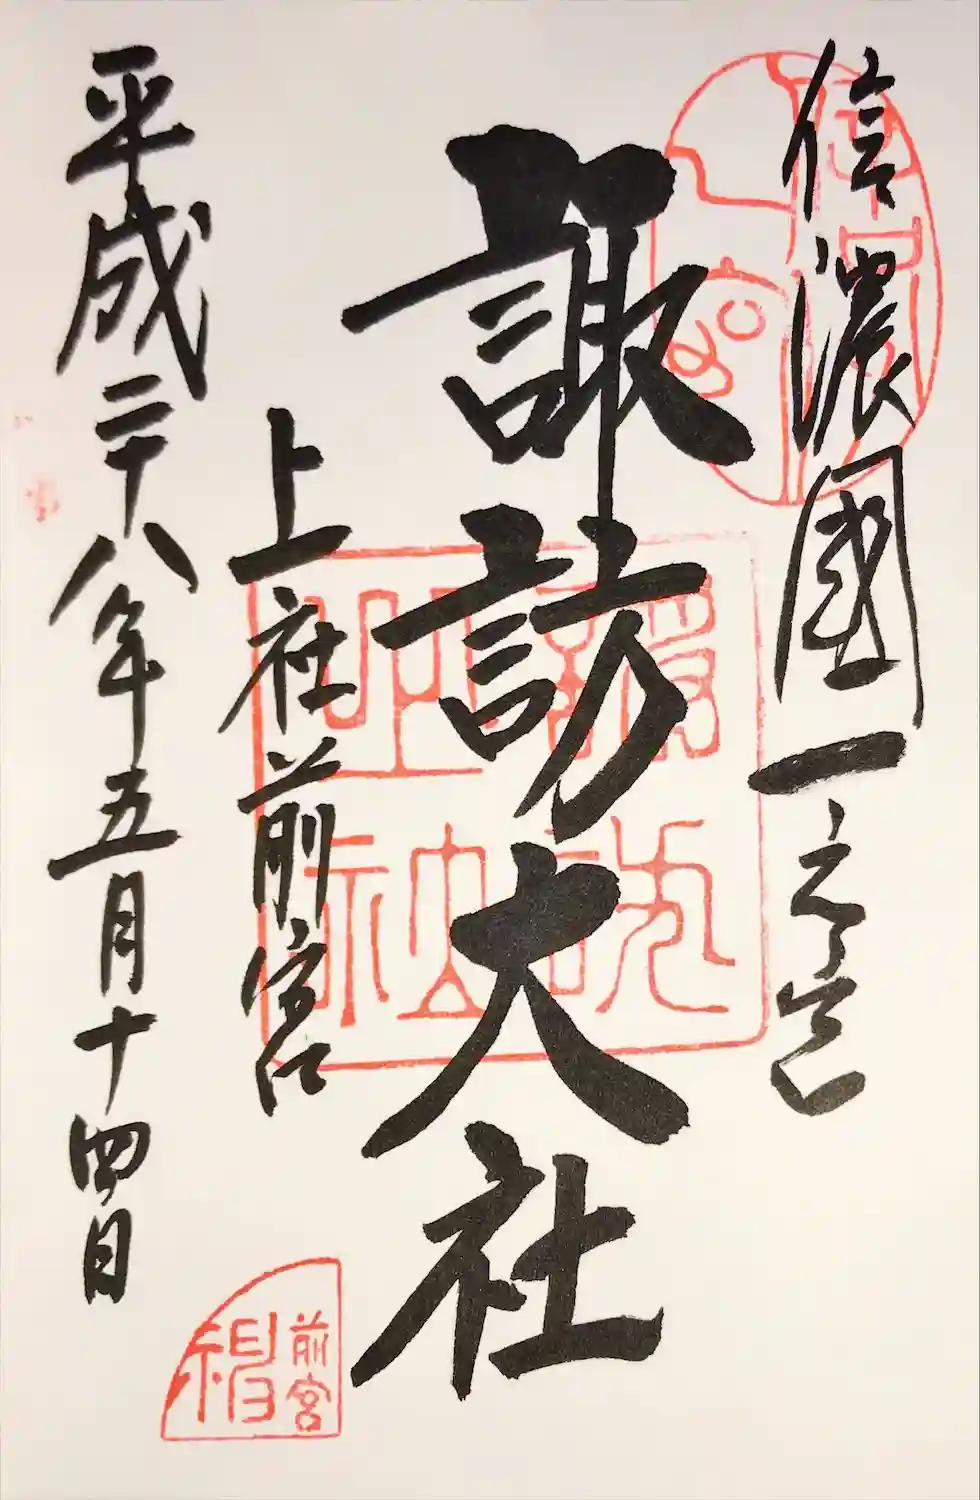 信濃國一之宮
諏訪大社
上社前宮
平成二十八年五月十四日
前宮